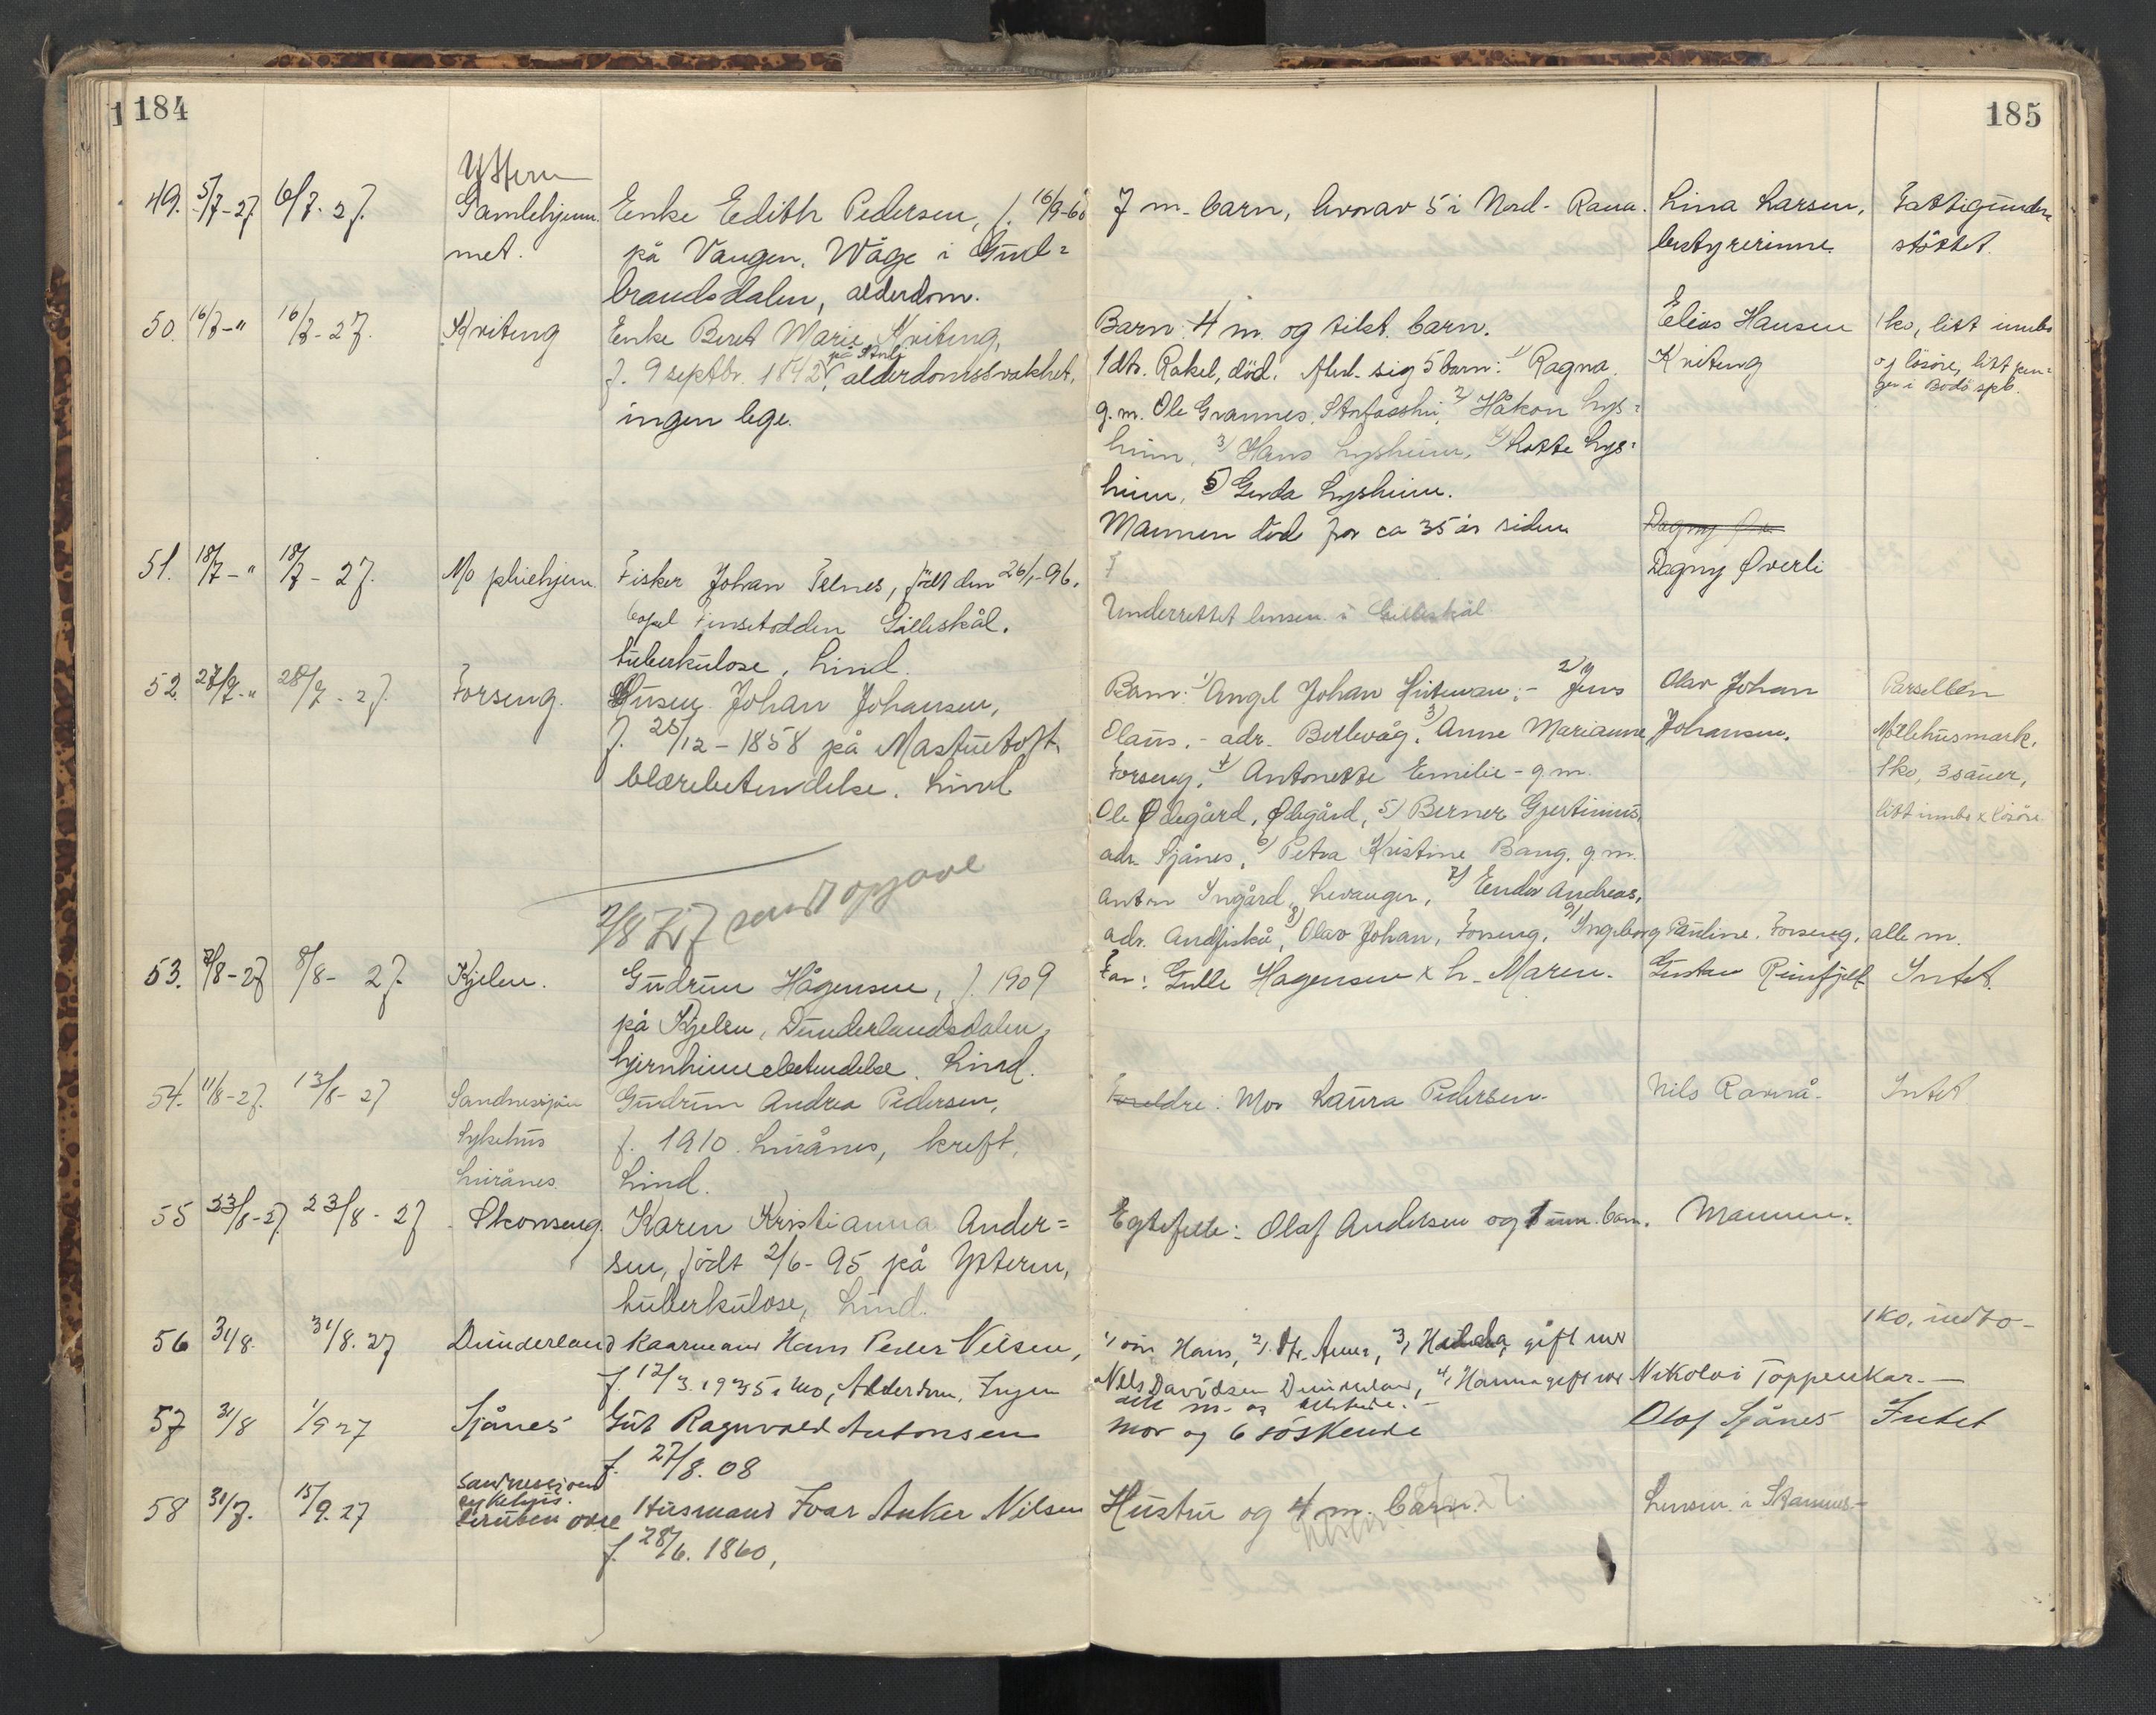 184
185
Yttern
49. 5/7-27. 6/7-27. Gamlehjem Enke Edith Pedersen, f. 16/9-60 7 m. barn, hvorav 5 i Nord-Rana. Lina Larsen, Fattigunder
met. på Vangen, Wåge i Gud= bestyrerinne. støttet.
brandsdalen, alderdom.
50. 16/7-" 16/7-27. Kviteng Enke Beret Marie Kviteng, Barn: 4 m. og tilst. barn. Elias Hansen 1 ko, litt innbo
f. 9 septbr. 1842, alderdomssvakhet, 1 dtr. Rakel, död. Abel. sig 5 barn: 1) Ragna Kviteng og lösöre, litt pen=
ger i Bodö spb.
ingen lege. g.m. Ole Grannes, 2) Håkon Lys=
heim, 3) Hans Lysheim, 4) Lotte Lys=
heim, 5) Gerda Lysheim.
Mannen död for ca 35 år siden Dagny
51. 18/7-" 18/7-27. Mo pleiehjem. Fisker Johan Telnes, født den 26/1-96. Dagny Øverli
Finsetodden Gilleskål. Underrettet lensm. i Gilleskål
tuberkulose, Lind.
52. 27/7-" 28/7-27. Forseng. Husm. Johan Johansen, Barn: 1) Angel Johan 2) Jens Olav Johan Parsellen
f. 25/12-1858 på Mastutoft, Olaus, - adr. Berlevåg, 3) Anne Marianne, Johansen. Møllehusmark,
blærebetendelse. Lind Forseng, 4) Antonette Emilie - g.m. 1 ko, 3 sauer,
Ole Ødegård, Ødegård, 5) Berner Gjertinius, litt innbo & lösöre.
adr. Sjånes, 6) Petra Kristine Bang, g.m.
Anton Yngård, Levanger, 7) Ender Andreas,
2/8 27 sendt opgave
adr. Andfiskå, 8) Olav Johan, Forseng, 9) Ingeborg Pauline, Forseng, alle m.
53. 7/8-27 8/8-27. Kjelen. Gudrun Hågensen, f. 1909 Far: Gulle Hagensen & h. Maren. Gustav Reinfjell Intet.
på Kjelen, Dunderlandsdalen,
hjernhinnebetendelse. Lind.
54. 11/8-27. 13/8-27 Sandnessjøen Gudrun Andrea Pedersen, Foreldre: Mor Laura Pedersen. Nils Ravnå. Intet
Sykehus f. 1910. Luirånes, kreft,
Luirånes. Lind.
55 23/8-27. 23/8-27 Skonseng. Karen Kristianna Ander= Egtefelle: Olaf Andersen og 1 um. barn. Mannen.
sen, födt 2/6-95 på Yttern,
tuberkulose, Lind.
1 ko, indbo-
56 31/8. 31/8.27 Dunderland Kaarmand Hans Peder Nilsen, 1) Hans, 2) Anne, 3) gift med
f. 12/3.1935 i Mo, Alderdom, Ingen Nils Davidsen Dunderland, 4) Hanna gift med Nikolai Toppenkar.
alle m. og tilstede.
57 31/8 1/9 27 Sjånes Gut Ragnvald Antonsen mor og 6 söskende Olaf Sjånes Intet
f. 27/8.08
58 31/7. 15/9.27 Sandnessjøen
sykehus. Husmand Ivar Anker Nilsen Hustru og 4 m. barn. Lensm. i Stamnes
f. 28/6.1860,